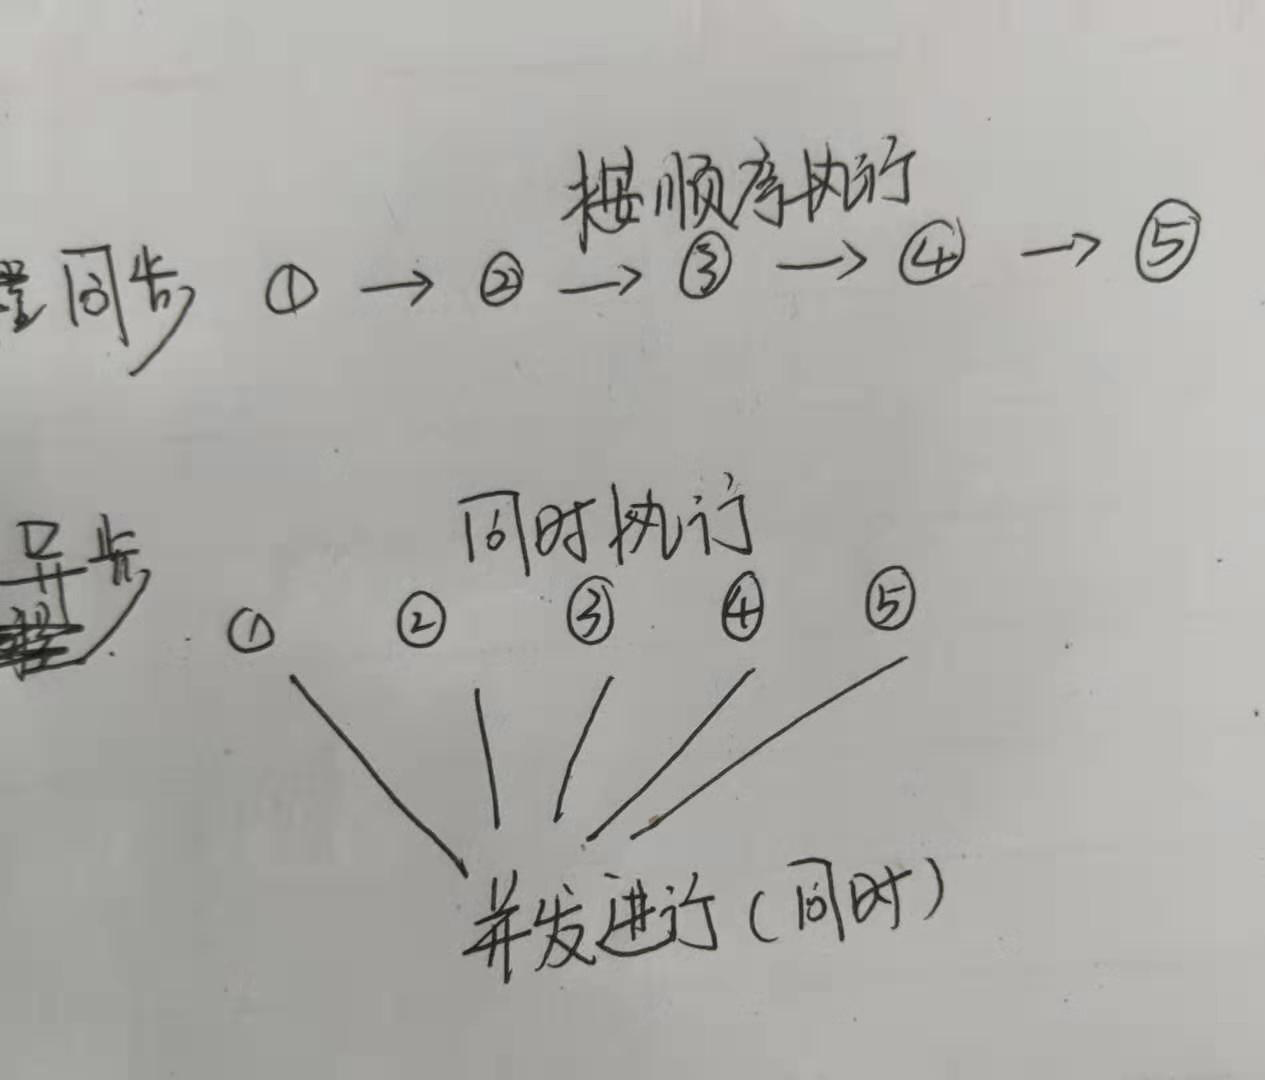 按顺序执行
同步 ① → ② → ③ → ④ → ⑤
同时执行
异步
① ② ③ ④ ⑤
并发进行(同时)